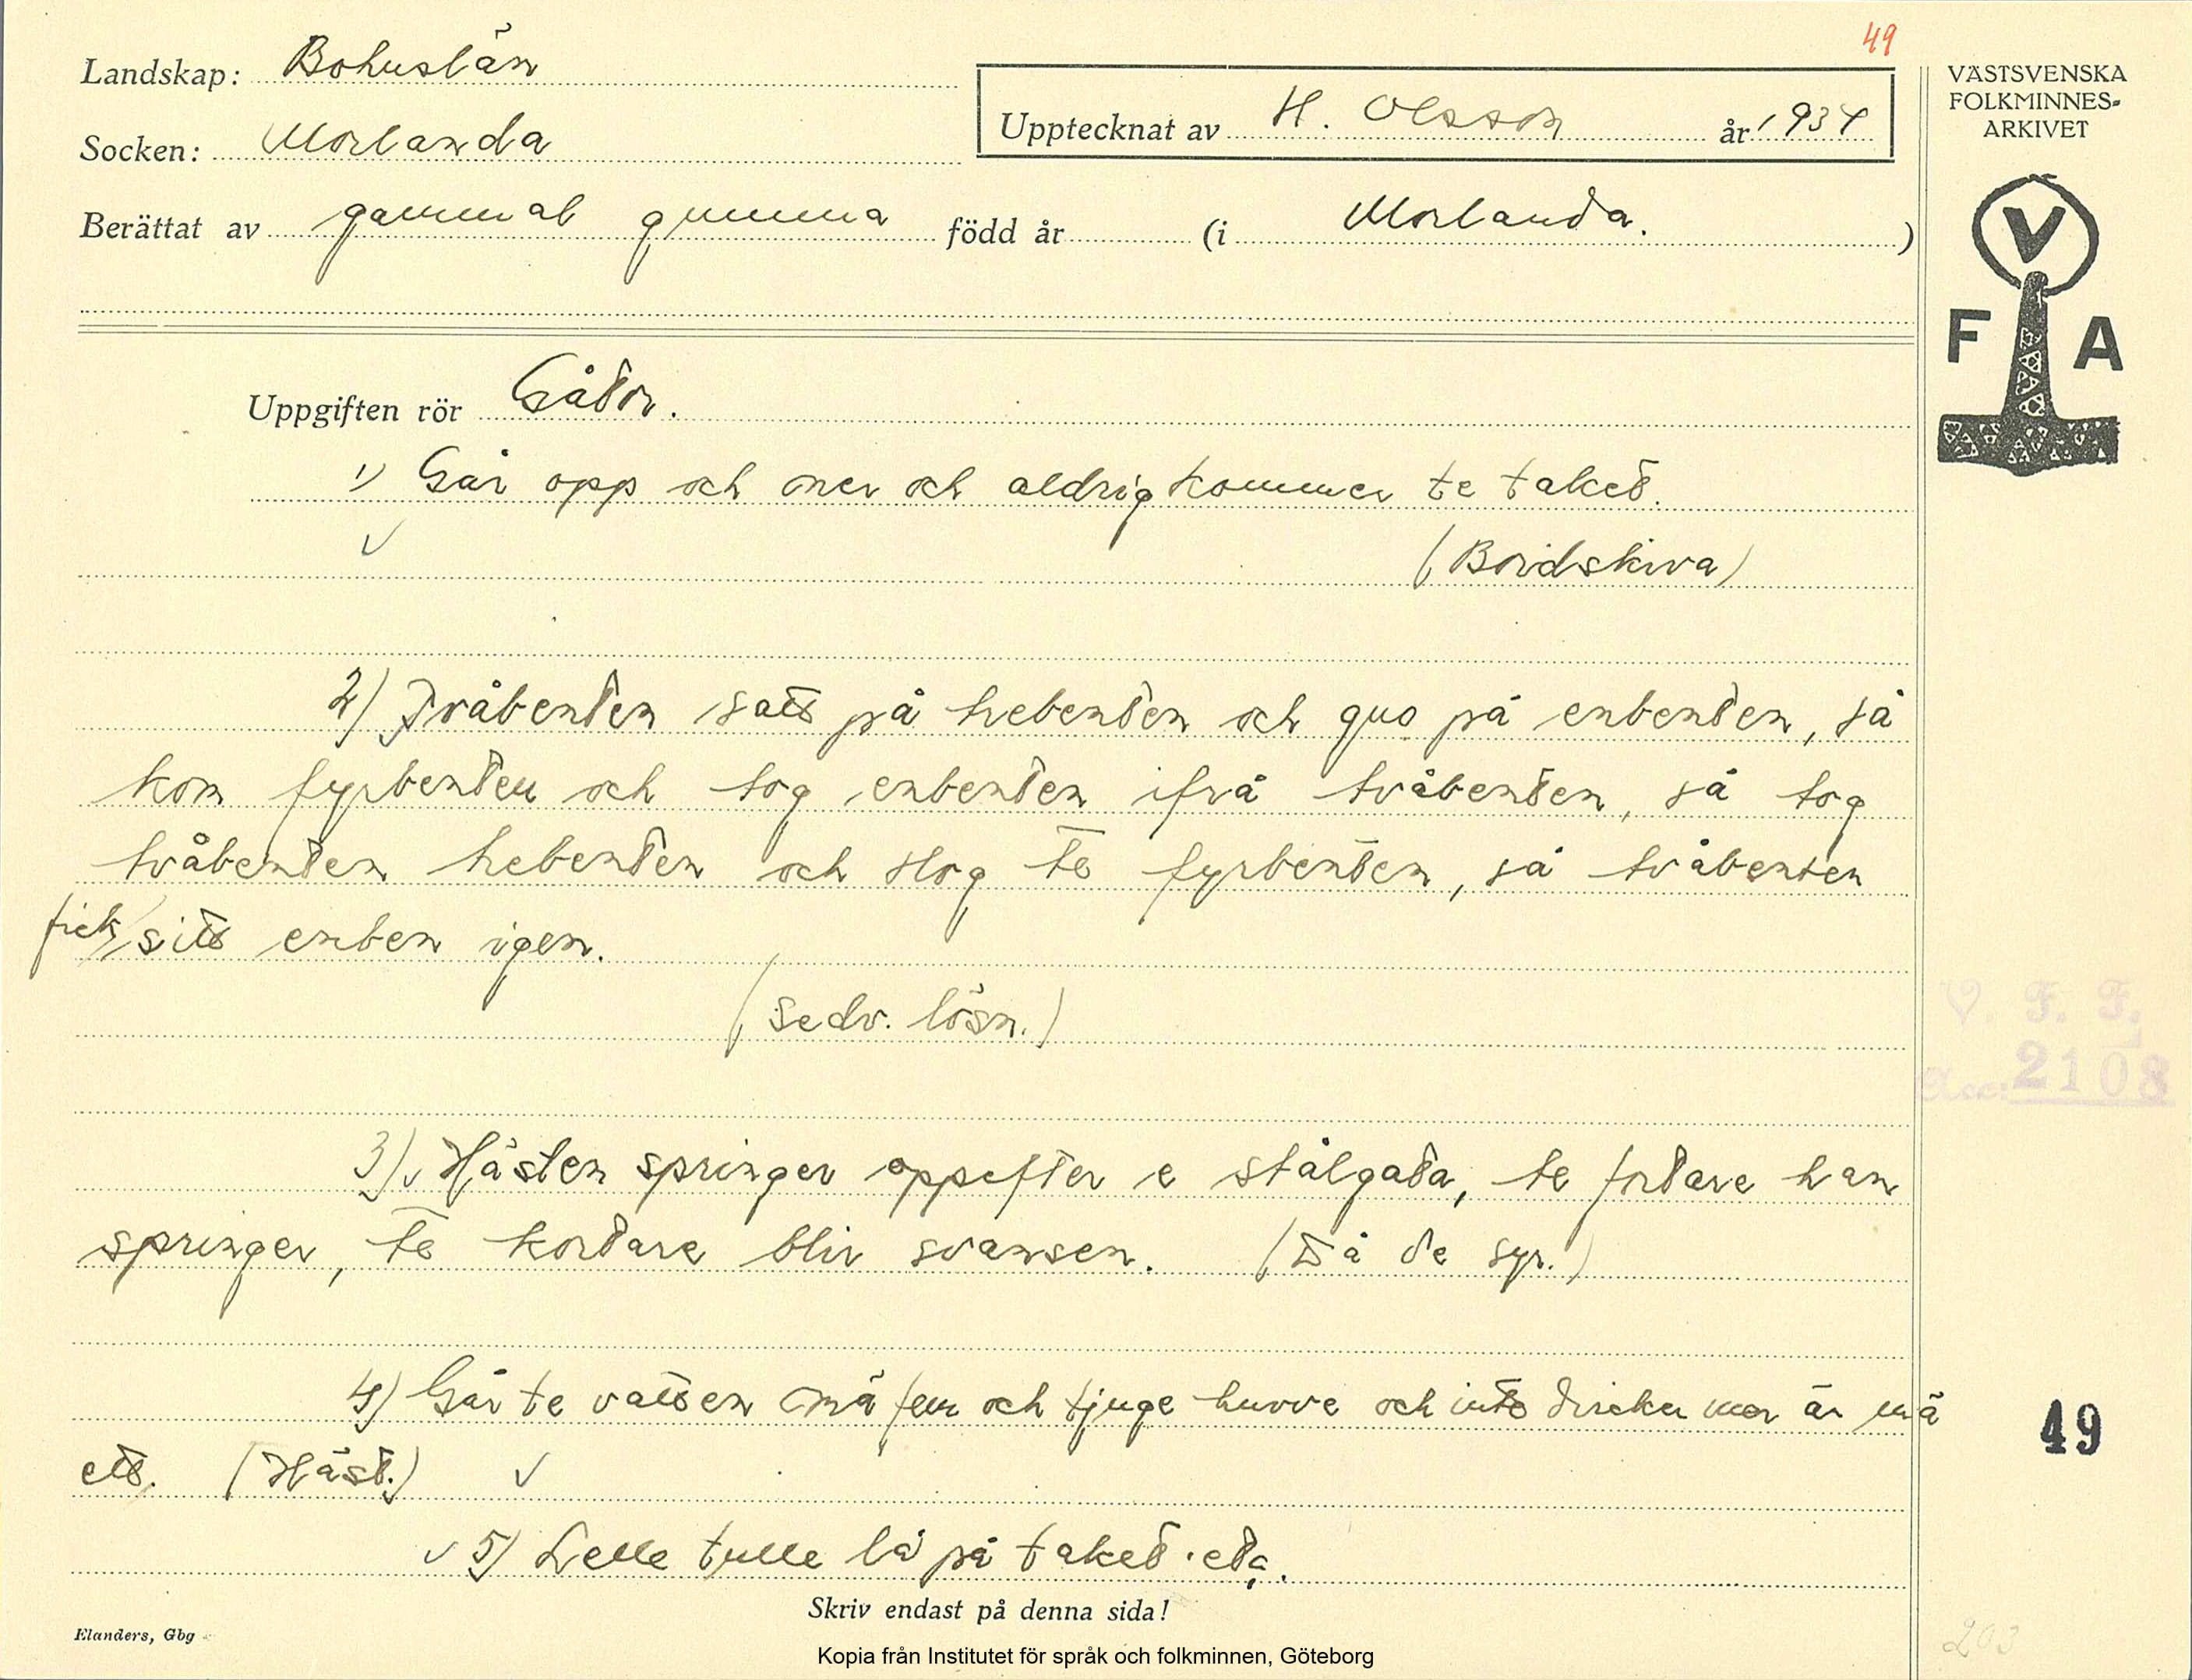 49
Landskap: Bohuslän
Socken: Morlanda
Upptecknat av H. Olsson år 1934
Berättat av gammal gumma född år (i Morlanda.)
VÄSTSVENSKA
FOLKMINNES-
ARKIVET
V
F A
Uppgiften rör Gåtor.
1) Går opp och ner och aldrig kommer te taket.
(Bordskiva)
2) Tvåbenten satt på trebenten och guo på enbenten, så
kom fyrbenten och tog enbenten ifrå tvåbenten, så tog
tvåbenten trebenten och slog te fyrbenten, så tvåbenten
fick sitt enben igen.
(sedv. lösn.)
V. F. F.
Acc: 2108
3) Hästen springer oppefter e stålgata, te fortare han
springer, te kortare blir svansen. (Då de syr.)
4) Går te vatten mä fem och tjuge huvve och inte dricker mer än mä
ett. (Häst.)
49
5) Lelle tulle lå på taket etc.
Skriv endast på denna sida!
Elanders, Gbg
203
Kopia från Institutet för språk och folkminnen, Göteborg